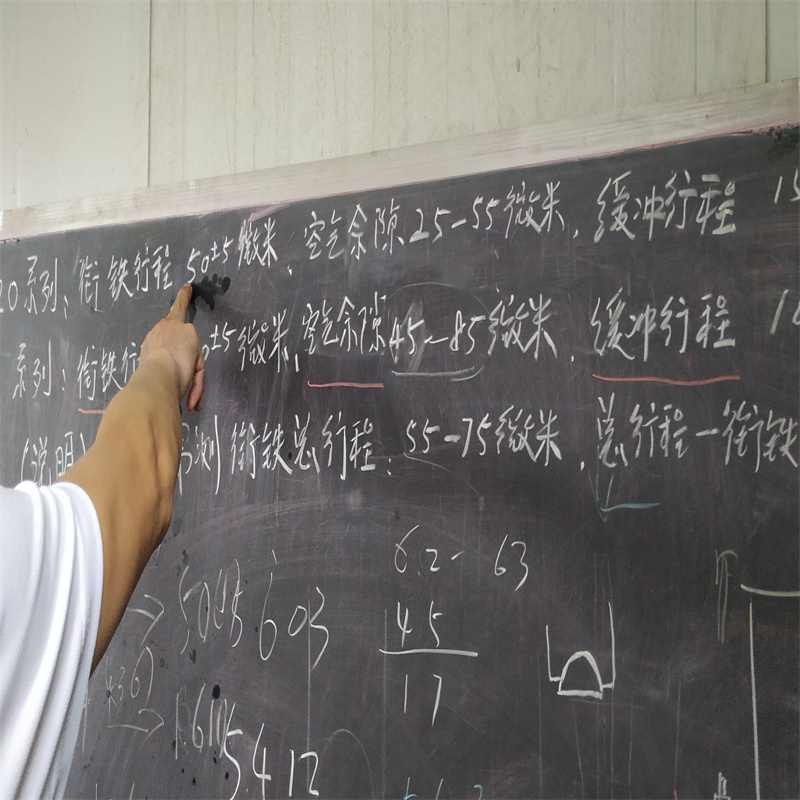 20系列：衔铁行程 50±5微米，空气余隙25-55微米，缓冲行程 15
系列：衔铁行 ±5微米，空气余隙45-85微米，缓冲行程 1
(说明) 测衔铁总行程：55-75微米，总行程-衔铁
62- 63
45
17
603
5.412